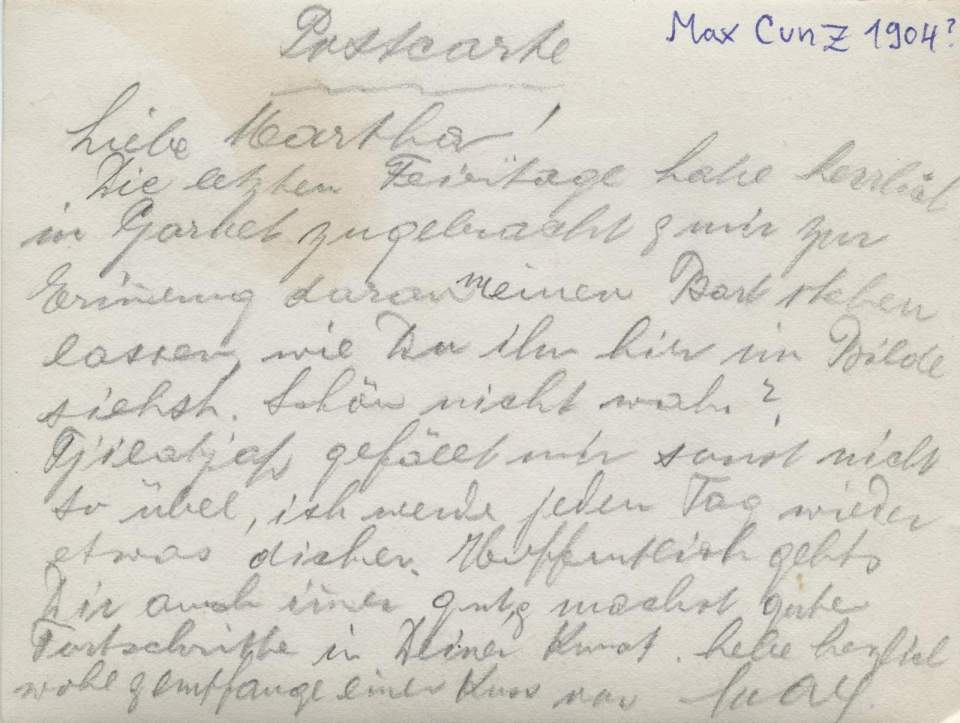 Max Cunz 1904?
Postcarte
Liebe Martha!
Die letzten Feiertage habe herrlich
in Garvet zugebracht & mir zur
Erinnerung daran meinen Bart stehen
lassen, wie Du ihn hier im Bilde
siehst. Schön nicht wahr?
Tjilatjap gefällt mir sonst nicht
so übel, ich werde jeden Tag wieder
etwas dicker. Hoffentlich gehts
Dir auch immer gut & machst gute
Fortschritte in Deiner Kunst. Lebe herzlich
wohl & empfange einen Kuss von Max.